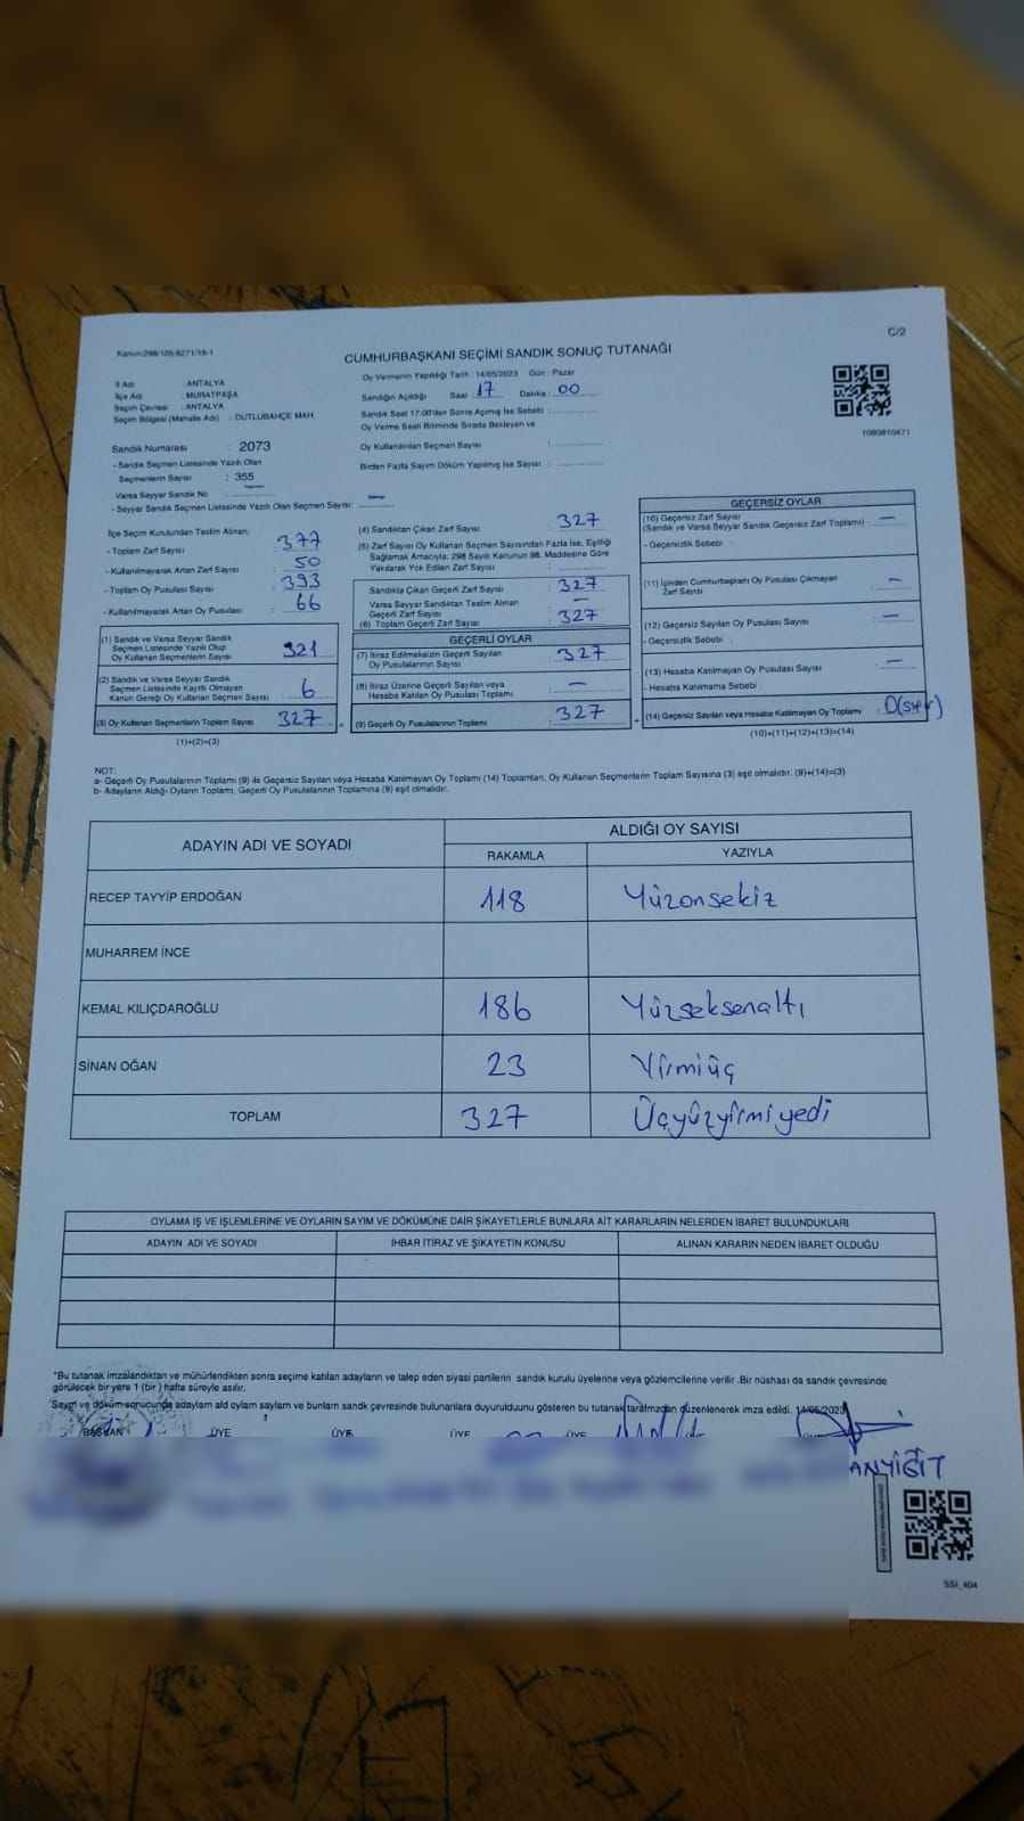 C/2
Kanun:298/105-6271/18-1
CUMHURBAŞKANI SEÇİMİ SANDIK SONUÇ TUTANAĞI
İl Adı : ANTALYA
İlçe Adı : MURATPAŞA
Seçim Çevresi : ANTALYA
Seçim Bölgesi (Mahalle Adı) : DUTLUBAHÇE MAH.
Sandık Numarası : 2073
- Sandık Seçmen Listesinde Yazılı Olan
Seçmenlerin Sayısı : 355
Varsa Seyyar Sandık No
- Seyyar Sandık Seçmen Listesinde Yazılı Olan Seçmen Sayısı:
Oy Vermenin Yapıldığı Tarih : 14/05/2023 Gün : Pazar
Sandığın Açıldığı Saat : 17 Dakika : 00
Sandık Saat 17:00'den Sonra Açılmış İse Sebebi :
Oy Verme Saati Bitiminde Sırada Bekleyen ve
Oy Kullandırılan Seçmen Sayısı :
Birden Fazla Sayım Döküm Yapılmış İse Sayısı :
1093810471
İlçe Seçim Kurulundan Teslim Alınan:
- Toplam Zarf Sayısı : 377
- Kullanılmayarak Artan Zarf Sayısı : 50
- Toplam Oy Pusulası Sayısı : 393
- Kullanılmayarak Artan Oy Pusulası : 66
(1) Sandık ve Varsa Seyyar Sandık
Seçmen Listesinde Yazılı Olup
Oy Kullanan Seçmenlerin Sayısı 321
(2) Sandık ve Varsa Seyyar Sandık
Seçmen Listesinde Kayıtlı Olmayan
Kanun Gereği Oy Kullanan Seçmen Sayısı 6
(3) Oy Kullanan Seçmenlerin Toplam Sayısı 327
(1)+(2)=(3)
(4) Sandıktan Çıkan Zarf Sayısı : 327
(5) Zarf Sayısı Oy Kullanan Seçmen Sayısından Fazla İse, Eşitliği
Sağlamak Amacıyla; 298 Sayılı Kanunun 98. Maddesine Göre
Yakılarak Yok Edilen Zarf Sayısı :
Sandıkta Çıkan Geçerli Zarf Sayısı : 327
Varsa Seyyar Sandıktan Teslim Alınan
Geçerli Zarf Sayısı : —
(6) Toplam Geçerli Zarf Sayısı : 327
GEÇERLİ OYLAR
(7) İtiraz Edilmeksizin Geçerli Sayılan
Oy Pusulalarının Sayısı : 327
(8) İtiraz Üzerine Geçerli Sayılan veya
Hesaba Katılan Oy Pusulası Toplamı : —
(9) Geçerli Oy Pusulalarının Toplamı : 327
GEÇERSİZ OYLAR
(10) Geçersiz Zarf Sayısı
(Sandık ve Varsa Seyyar Sandık Geçersiz Zarf Toplamı) : —
- Geçersizlik Sebebi :
(11) İçinden Cumhurbaşkanı Oy Pusulası Çıkmayan
Zarf Sayısı : —
(12) Geçersiz Sayılan Oy Pusulası Sayısı : —
- Geçersizlik Sebebi :
(13) Hesaba Katılmayan Oy Pusulası Sayısı : —
- Hesaba Katılmama Sebebi
(14) Geçersiz Sayılan veya Hesaba Katılmayan Oy Toplamı : 0(sıfır)
(10)+(11)+(12)+(13)=(14)
NOT:
a- Geçerli Oy Pusulalarının Toplamı (9) ile Geçersiz Sayılan veya Hesaba Katılmayan Oy Toplamı (14) Toplamları, Oy Kullanan Seçmenlerin Toplam Sayısına (3) eşit olmalıdır. (9)+(14)=(3)
b- Adayların Aldığı Oyların Toplamı, Geçerli Oy Pusulalarının Toplamına (9) eşit olmalıdır.
ADAYIN ADI VE SOYADI ALDIĞI OY SAYISI
RAKAMLA YAZIYLA
RECEP TAYYİP ERDOĞAN 118 Yüzonsekiz
MUHARREM İNCE
KEMAL KILIÇDAROĞLU 186 Yüzseksenaltı
SİNAN OĞAN 23 Yirmiüç
TOPLAM 327 Üçyüzyirmiyedi
OYLAMA İŞ VE İŞLEMLERİNE VE OYLARIN SAYIM VE DÖKÜMÜNE DAİR ŞİKAYETLERLE BUNLARA AİT KARARLARIN NELERDEN İBARET BULUNDUKLARI
ADAYIN ADI VE SOYADI İHBAR İTİRAZ VE ŞİKAYETİN KONUSU ALINAN KARARIN NEDEN İBARET OLDUĞU
*Bu tutanak imzalandıktan ve mühürlendikten sonra seçime katılan adayların ve talep eden siyasi partilerin sandık kurulu üyelerine veya gözlemcilerine verilir. Bir nüshası da sandık çevresinde
görülecek bir yere 1 (bir) hafta süreyle asılır.
Sayım ve döküm sonucunda adayların aldığı oyların sayıların ve bunların sandık çevresinde bulunanlara duyurulduğunu gösteren bu tutanak tarafımızdan düzenlenerek imza edildi. 14/05/2023
BAŞKAN ÜYE ÜYE ÜYE ÜYE
ANYİĞİT
SSİ_404